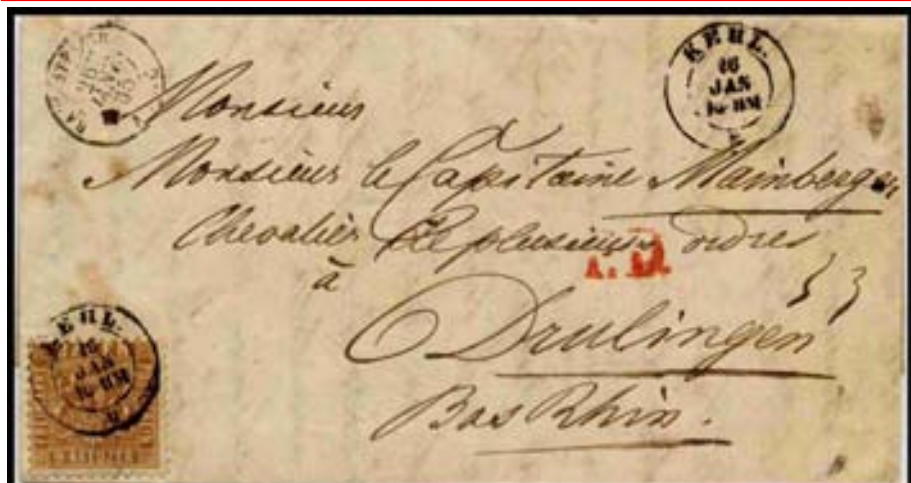 KEHL.
16
JAN
Monsieur
Monsieur le Capitaine Mainberger
Chevalier de plusieurs ordres
P.D.
à
Drulingen
Bas Rhin.
KEHL.
16
JAN